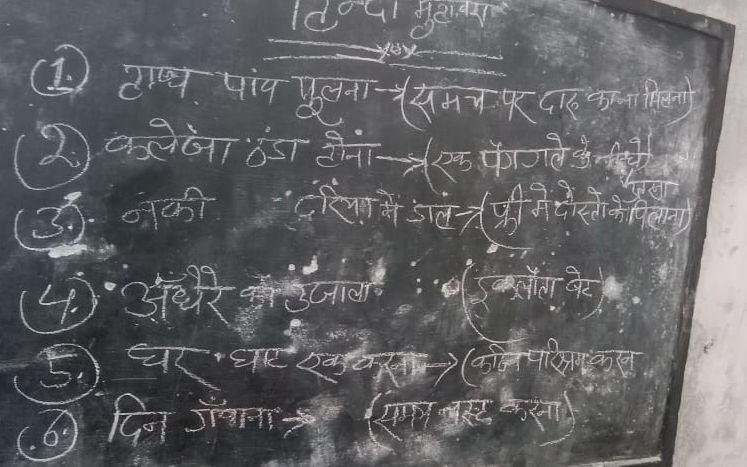 हिन्दी मुहावरा
1. हाथ पांव फूलना → (समय पर दारू का ना मिलना)
2. कलेजा ठंडा होना → (एक पैग गले के नीचे
3. नेकी दरिया में डाल → (फ्री में दोस्तों को पिलाना)
4. अँधेरे का उजाला (इकलौता बेटा)
5. घर घाट एक करना → (कठिन परिश्रम करना
6. दिन गँवाना → (समय नस्ट करना)